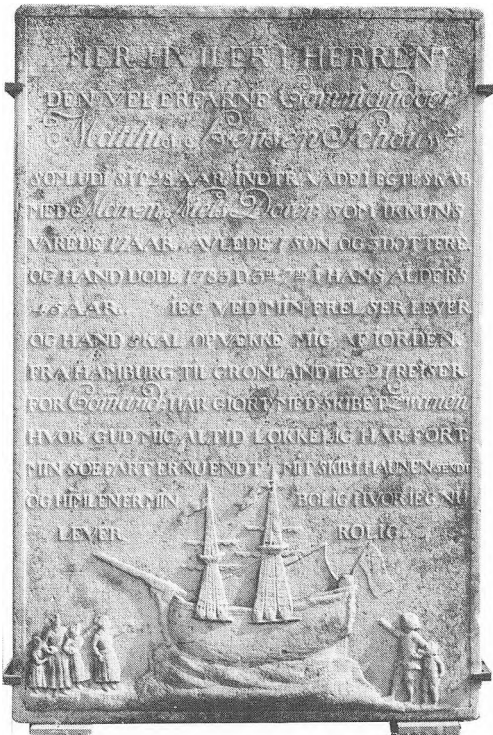 HER HVILER I HERREN
DEN VELERFARNE Commandeer
Matthis Jensen
SOM UDI SIT 28 AAR INDTRAADE I EGTESKAB
MED Marren Niels SOM IKKUNS
VAREDE 17 AAR. AVLEDE 1 SON OG 3 DOTTERE.
OG HAND DODE 1783 D I HANS ALDERS
45 AAR. IEG VED MIN FRELSER LEVER
OG HAND SKAL OPVÆKKE MIG AF IORDEN.
FRA HAMBURG TIL GRONLAND IEG 21 REISER.
FOR Comand HAR GIORT MED SKIBET Zwanen
HVOR GUD MIG ALTID LOKKELIG HAR FORT.
MIN SOEFART ER NU ENDT MIT SKIB I HAUNEN SENDT
OG HIMLEN ER MIN BOLIG HVOR IEG NU
LEVER ROLIG.